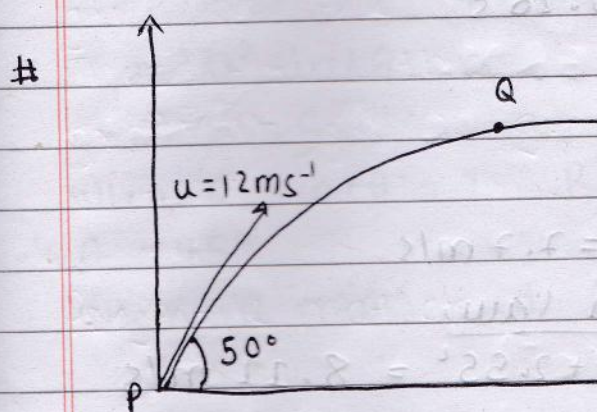 #
Q
u = 12ms⁻¹
50°
P